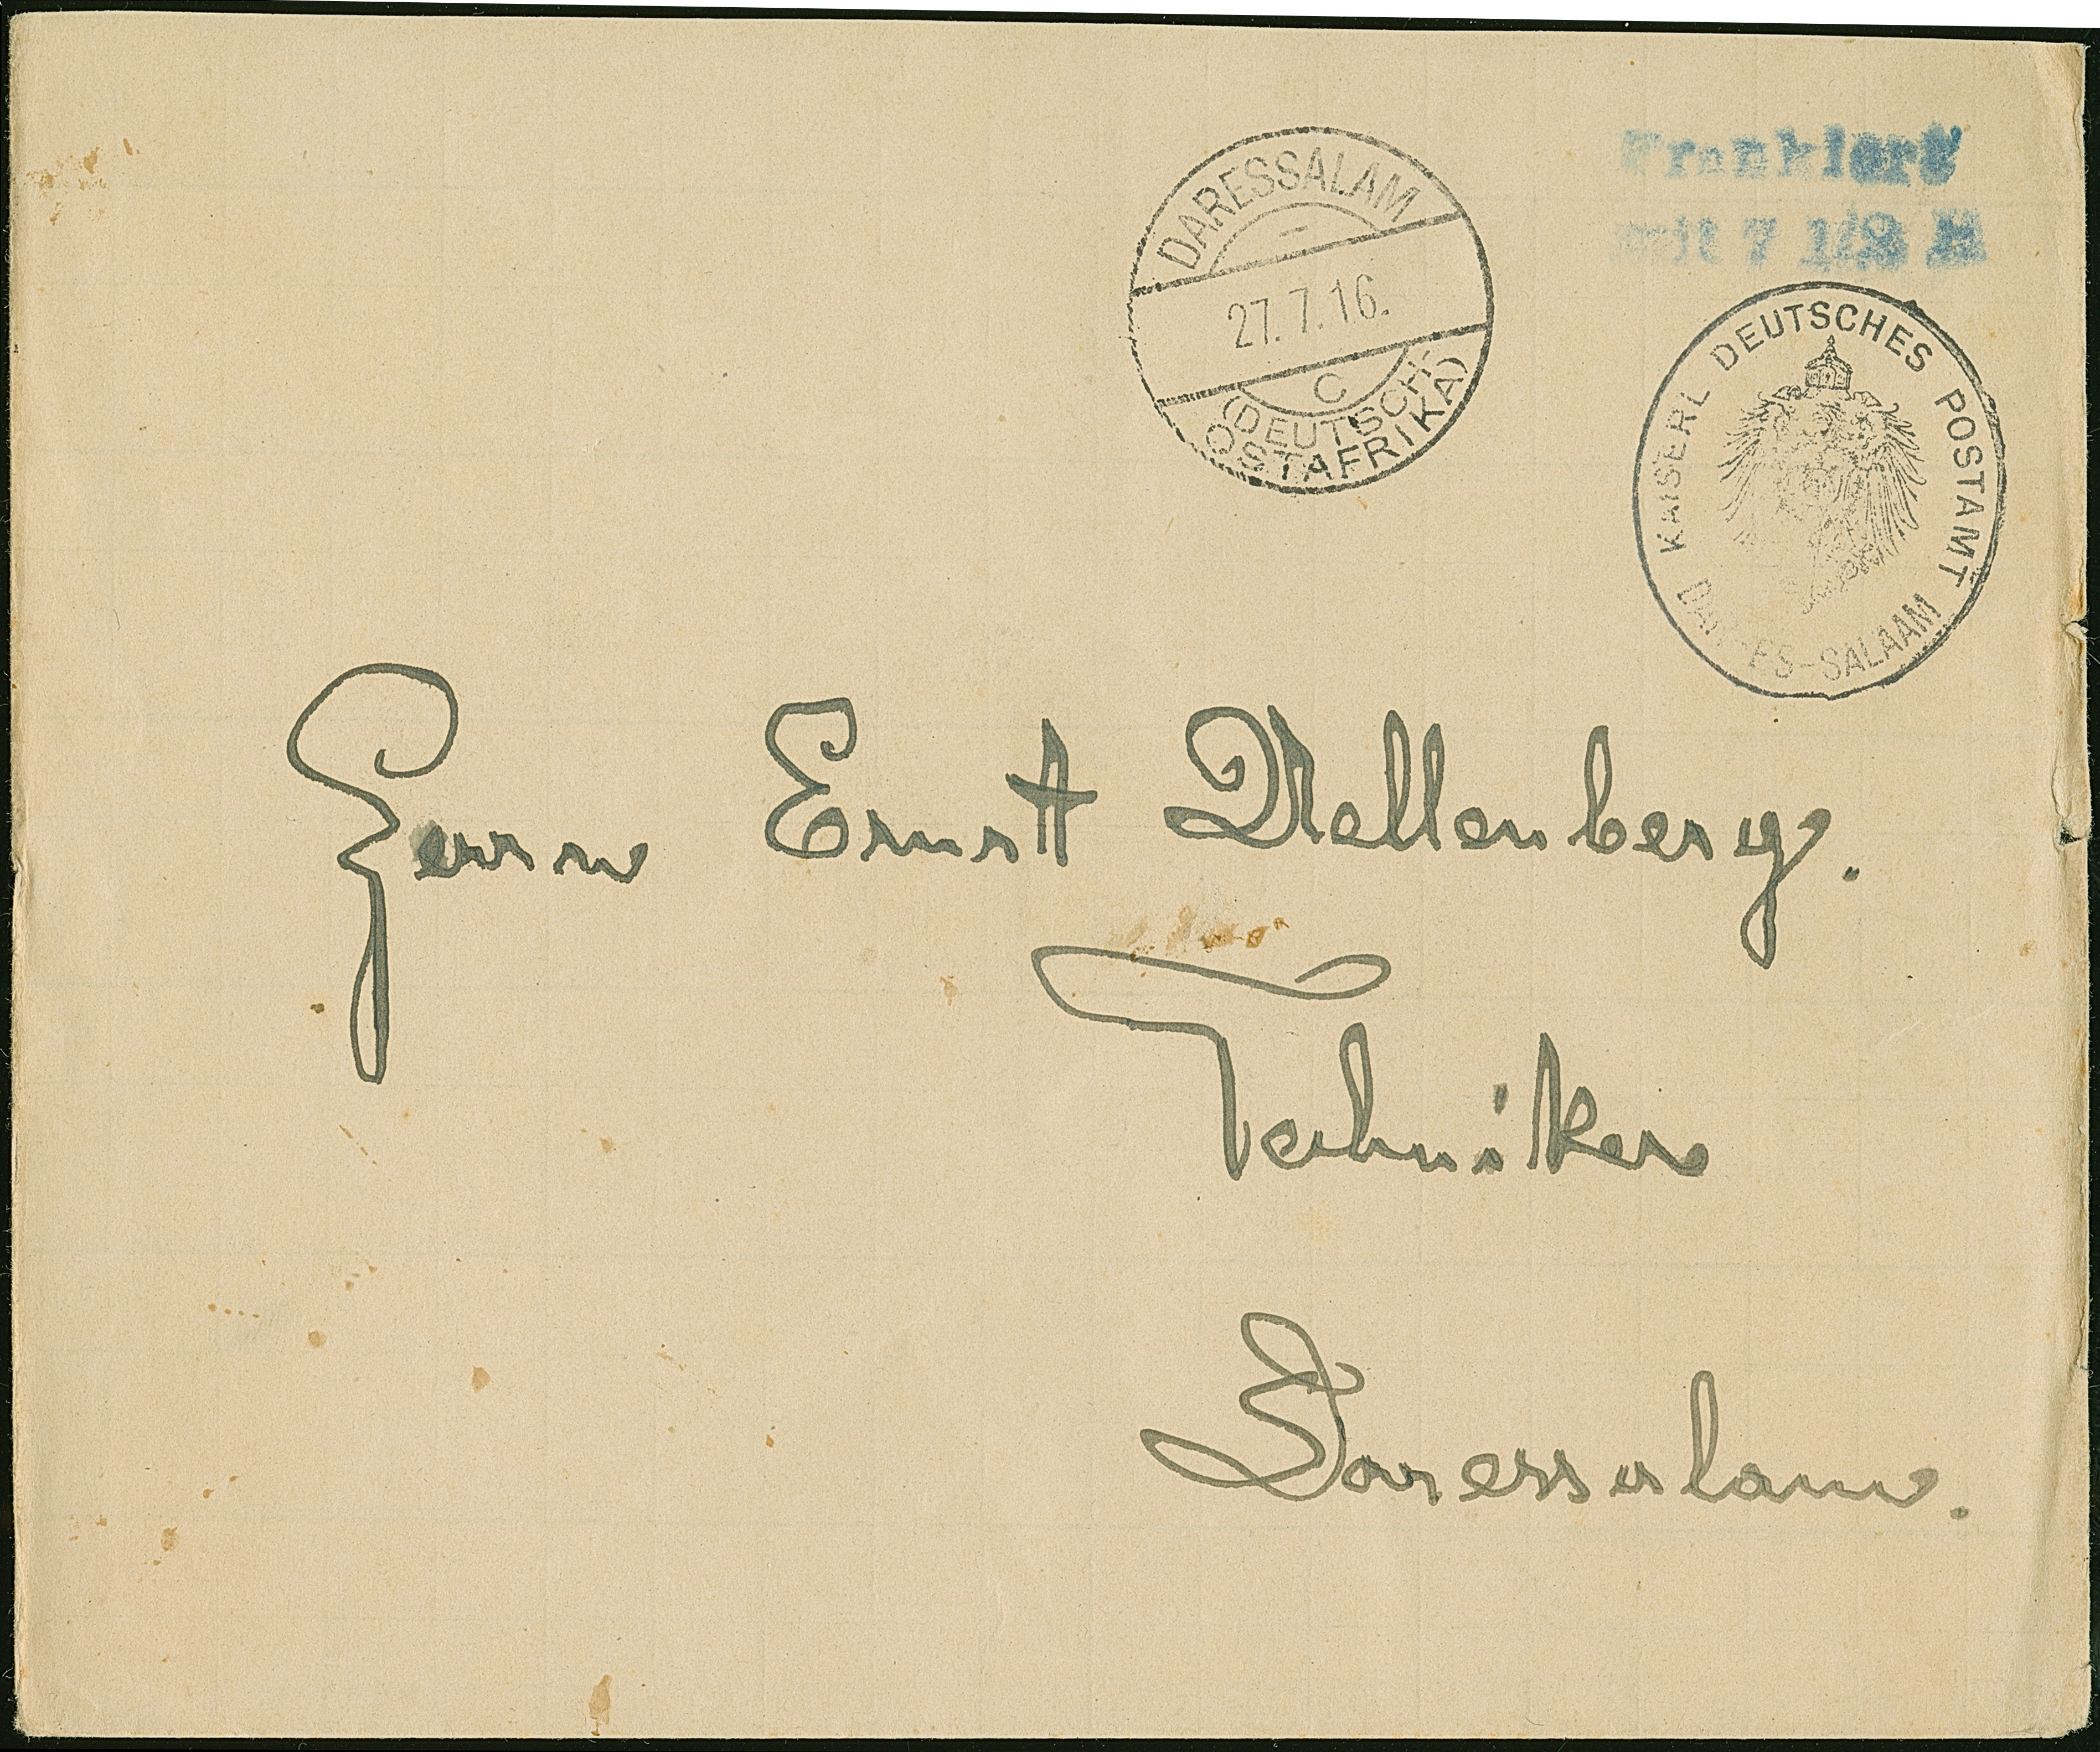 Frankiert
mit 7 1/2 H
DARESSALAM
27.7.16.
C
(DEUTSCH-
OSTAFRIKA)
KAISERL DEUTSCHES POSTAMT
DAR-ES-SALAAM
Herrn Ernst Mellenberg.
Techniker
Daressalam.